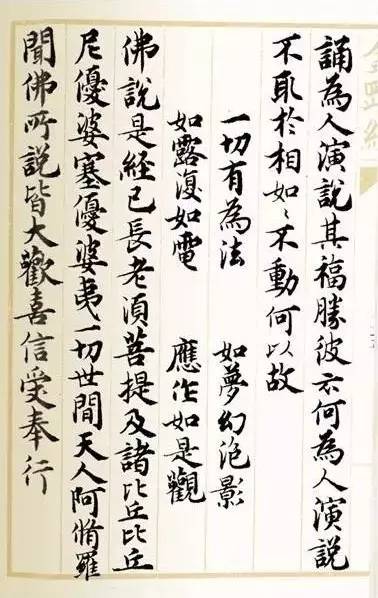 誦為人演說其福勝彼云何為人演說
不取於相如〻不動何以故
一切有為法 如夢幻泡影
如露復如電 應作如是觀
佛說是經已長老須菩提及諸比丘比丘
尼優婆塞優婆夷一切世間天人阿脩羅
聞佛所說皆大歡喜信受奉行